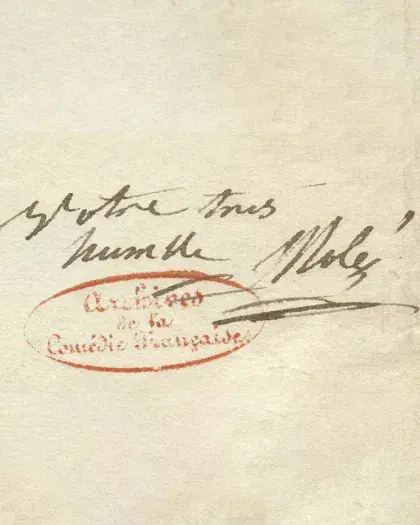 Votre tres
humble Molé
Archives
de la
Comédie Française